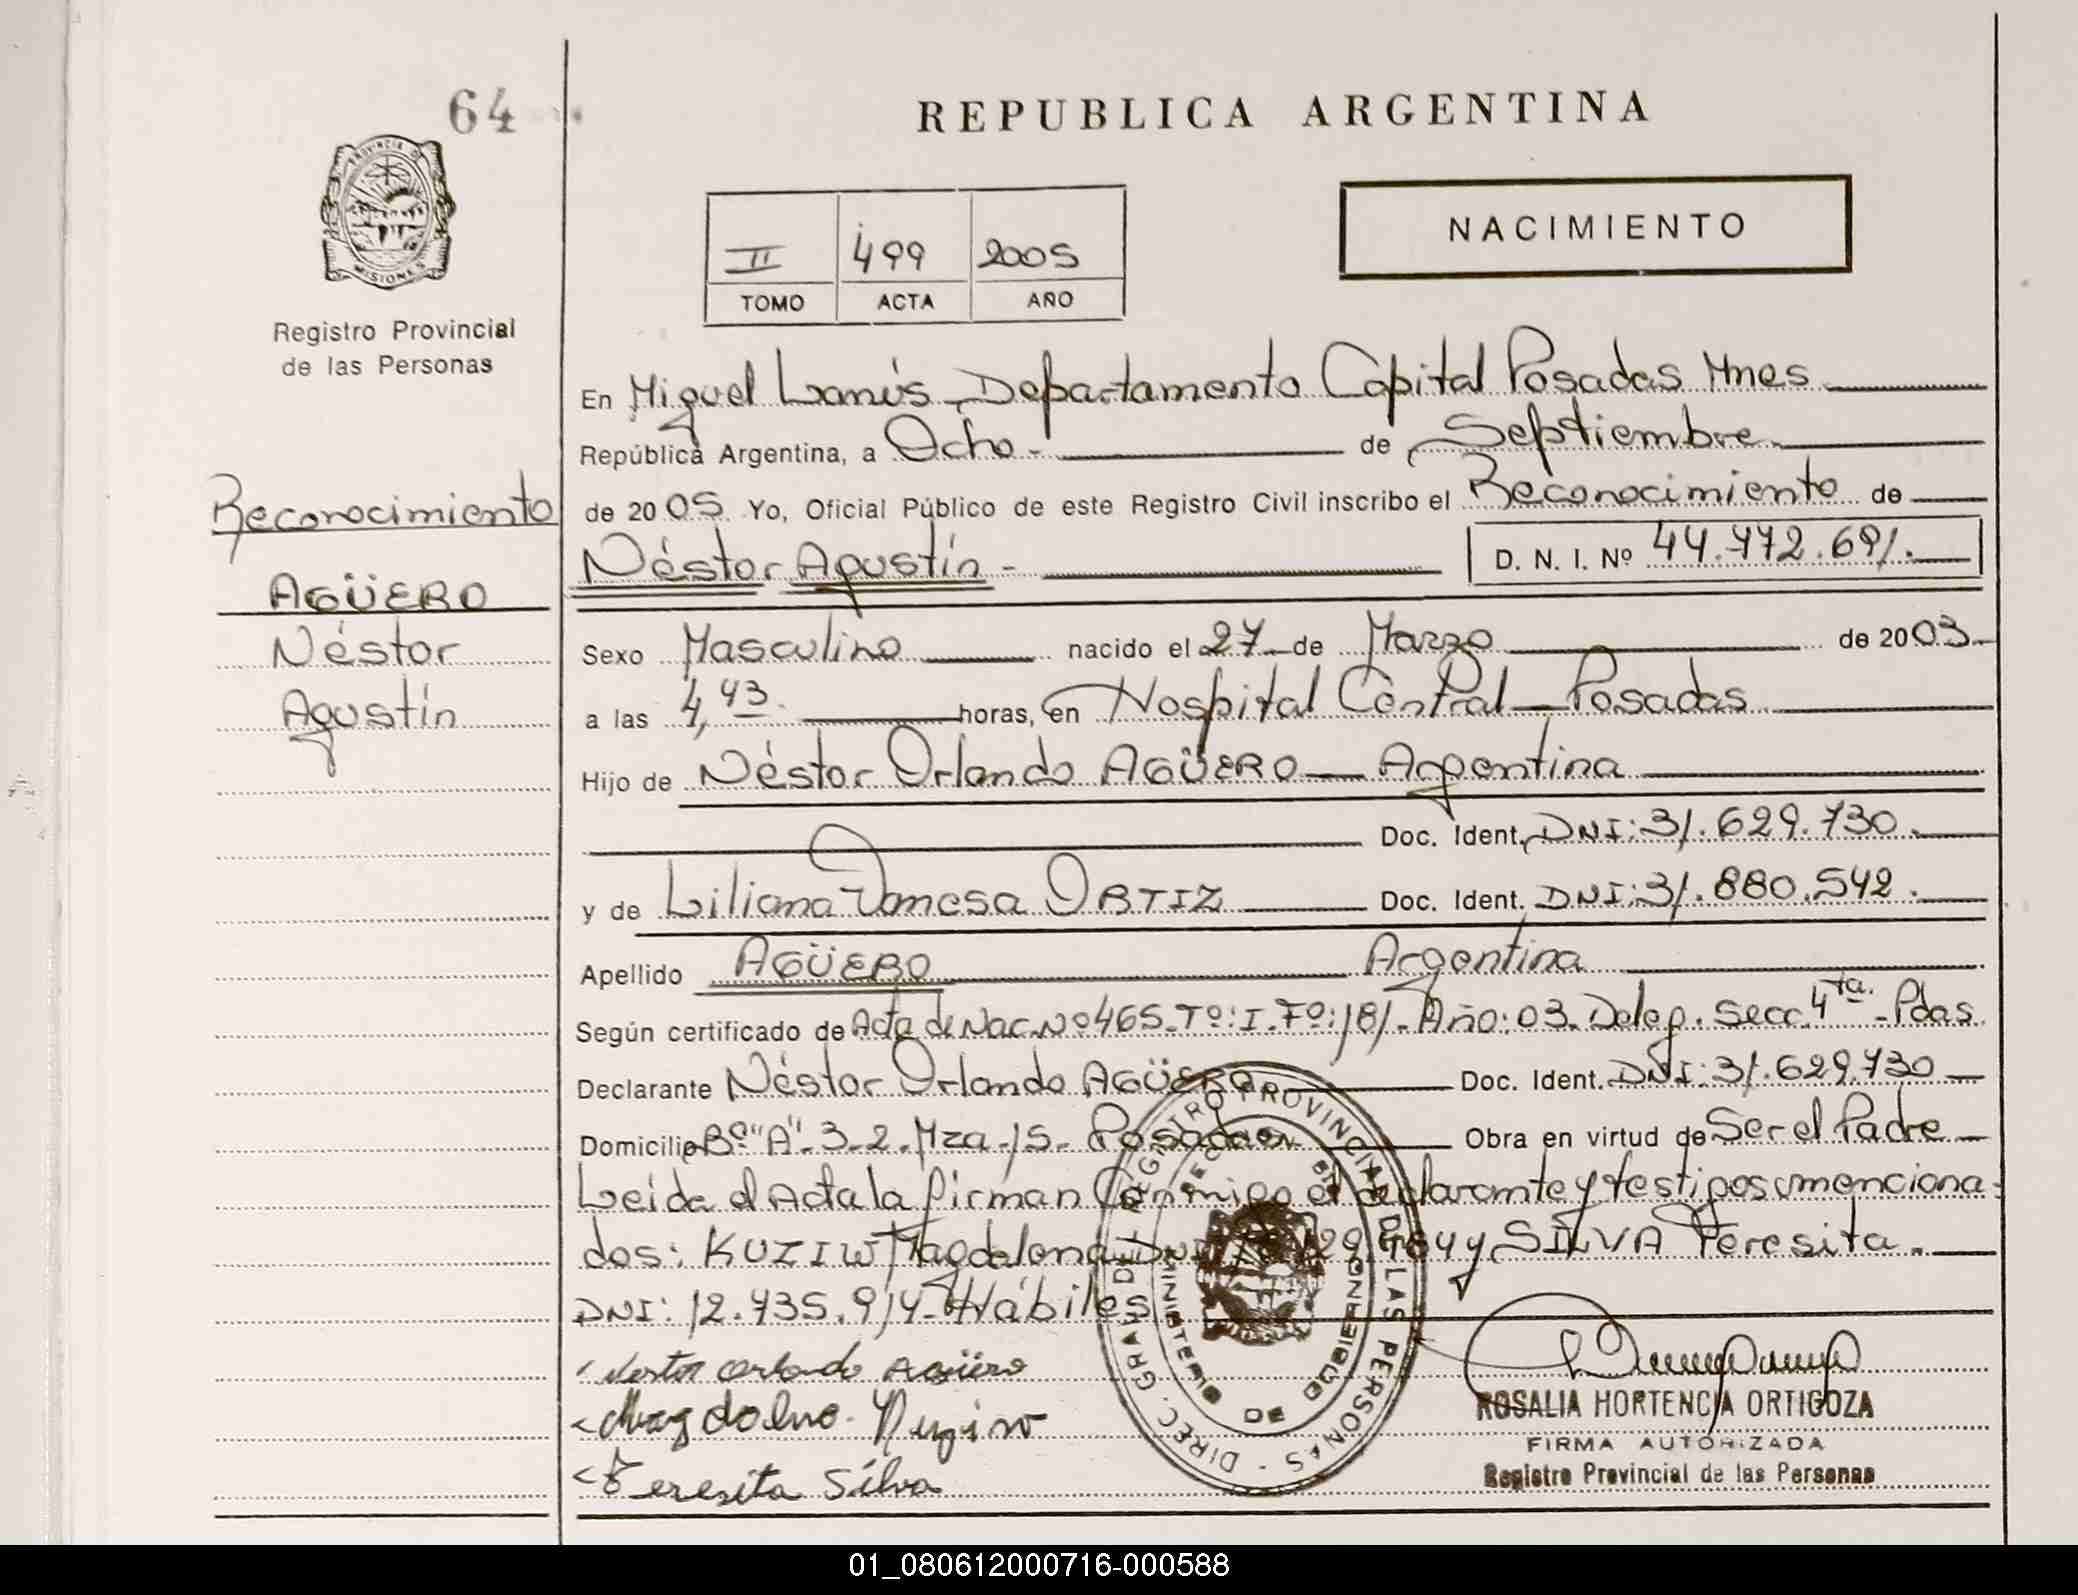 64
REPUBLICA ARGENTINA
PROVINCIA D
MISIONES
NACIMIENTO
II 499 2005
TOMO ACTA AÑO
Registro Provincial
de las Personas
En Miguel Lanús Departamento Capital Posadas Mnes
República Argentina, a Ocho.- de Septiembre
de 2005 Yo, Oficial Público de este Registro Civil inscribo el Reconocimiento de
Néstor Agustín - D. N. I. Nº 44.772.691.
Reconocimiento
AGÜERO
Néstor
Agustín
Sexo Masculino nacido el 27 de Marzo de 2003
a las 4,43. horas, en Hospital Central - Posadas
Hijo de Néstor Orlando AGÜERO - Argentina
Doc. Ident. DNI: 31.629.730.
y de Liliana Vanesa ORTIZ Doc. Ident. DNI: 31.880.542.
Apellido AGÜERO Argentina
Según certificado de Acta de Nac. Nº 465. Tº: I. Fº: 181. Año: 03. Deleg. Secc. 4ta. - Pdas.
Declarante Néstor Orlando AGÜERO Doc. Ident. DNI: 31.629.730
Domicilio Bº "A"-3-2. Mza-15- Posadas Obra en virtud de Ser el Padre
Leida el Acta la firman Conmigo el declarante y testigos menciona-
dos: KUZIW Magdalena DNI y SILVA Teresita.
DNI: 12.735.914- Hábiles
Nestor Orlando Agüero
Magdalena
Teresita Silva
DIREC. GRAL. DEL REGISTRO PROVINCIAL DE LAS PERSONAS
MINISTERIO DE GOBIERNO
ROSALIA HORTENCIA ORTIGOZA
FIRMA AUTORIZADA
Registro Provincial de las Personas
01_080612000716-000588